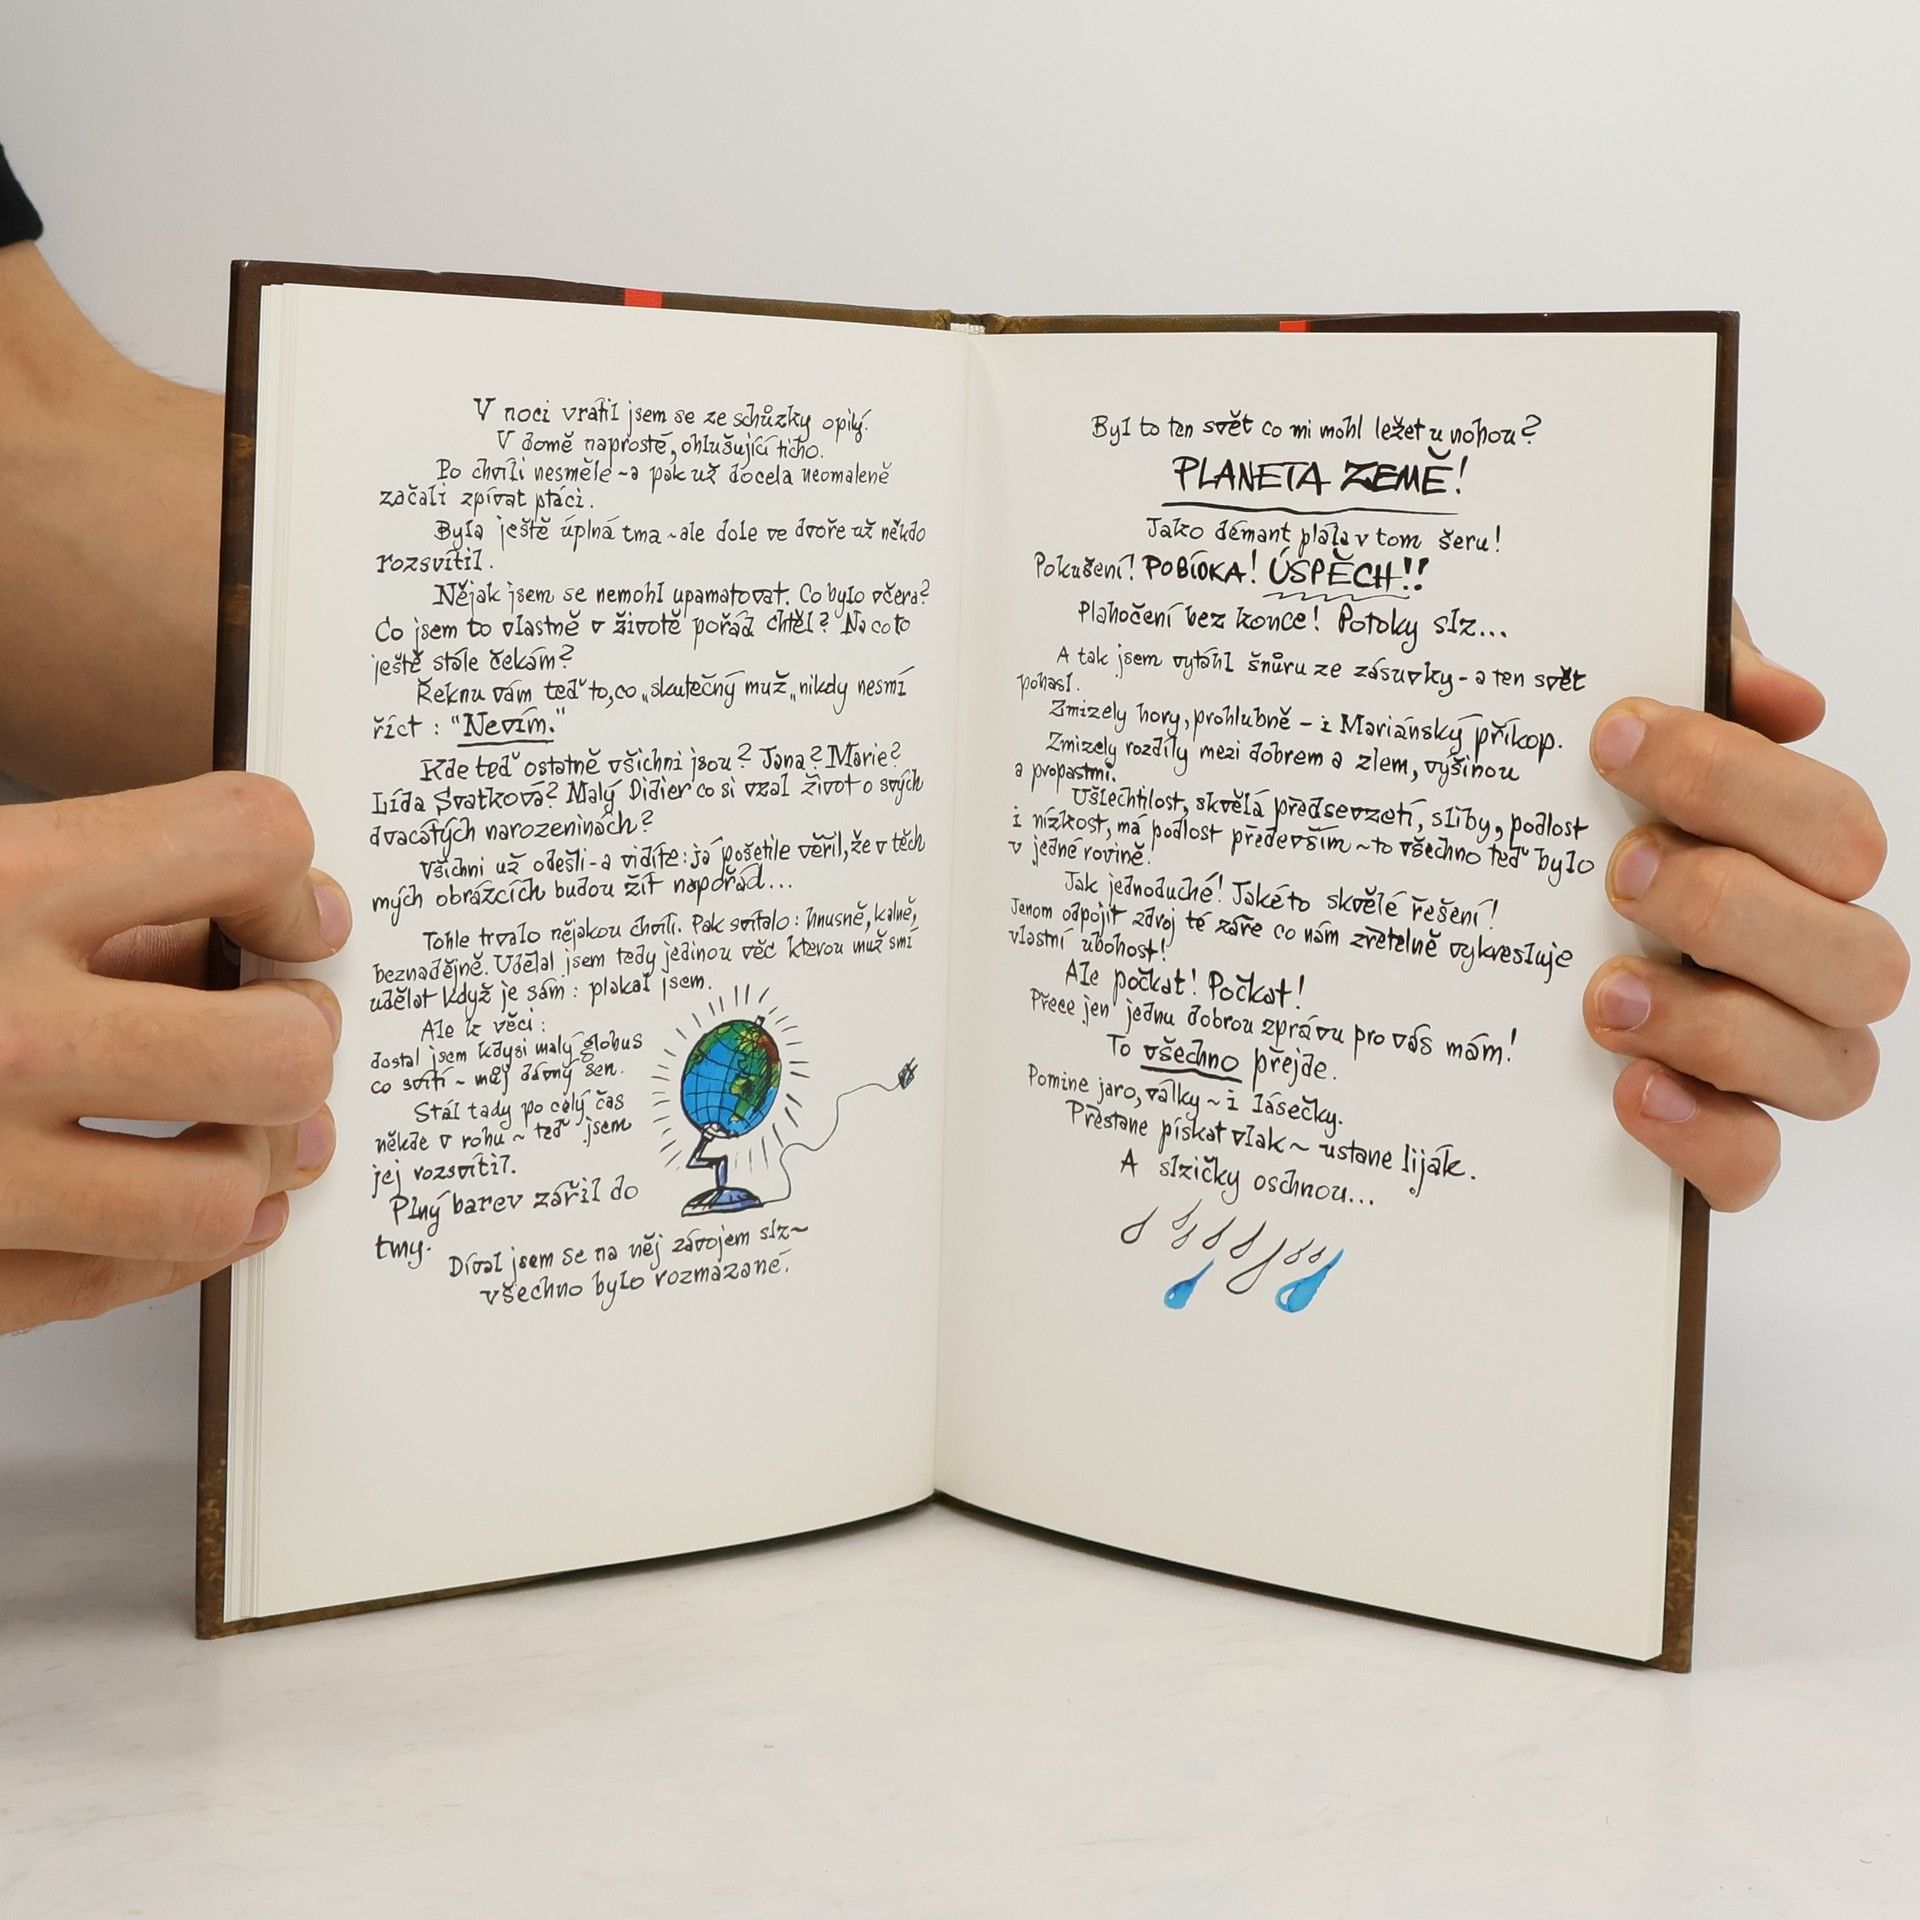 V noci vrátil jsem se ze schůzky opilý.
V domě naprosté, ohlušující ticho.
Po chvíli nesměle ~ a pak už docela neomaleně
začali zpívat ptáci.
Byla ještě úplná tma ~ ale dole ve dvoře už někdo
rozsvítil.
Nějak jsem se nemohl upamatovat. Co bylo včera?
Co jsem to vlastně v životě pořád chtěl? Na co to
ještě stále čekám?
Řeknu vám teď to, co „skutečný muž„ nikdy nesmí
říct : "Nevím."
Kde teď ostatně všichni jsou? Jana? Marie?
Lída Svatková? Malý Didier co si vzal život o svých
dvacátých narozeninách?
Všichni už odešli - a vidíte: já pošetile věřil, že v těch
mých obrázcích budou žít napořád...
Tohle trvalo nějakou chvíli. Pak svítalo : hnusně, kalně,
beznadějně. Udělal jsem tedy jedinou věc kterou muž smí
udělat když je sám : plakal jsem.
Ale k věci :
dostal jsem kdysi malý globus
co svítí ~ můj dávný sen.
Stál tady po celý čas
někde v rohu ~ teď jsem
jej rozsvítil.
Plný barev zářil do
tmy.
Díval jsem se na něj závojem slz ~
všechno bylo rozmazané.
Byl to ten svět co mi mohl ležet u nohou?
PLANETA ZEMĚ!
Jako démant plála v tom šeru!
Pokušení! POBÍDKA! ÚSPĚCH!!
Plahočení bez konce! Potoky slz...
A tak jsem vytáhl šnůru ze zásuvky - a ten svět
pohasl.
Zmizely hory, prohlubně - i Mariánský příkop.
Zmizely rozdíly mezi dobrem a zlem, vyšinou
a propastmi.
Ušlechtilost, skvělá předsevzetí, sliby, podlost
i nízkost, má podlost především ~ to všechno teď bylo
v jedné rovině.
Jak jednoduché! Jakéto skvělé řešení!
Jenom odpojit zdroj té záře co nám zřetelně vykresluje
vlastní ubohost!
Ale počkat! Počkat!
Přece jen jednu dobrou zprávu pro vás mám!
To všechno přejde.
Pomine jaro, války ~ i lásečky.
Přestane pískat vlak ~ ustane liják.
A slzičky oschnou...